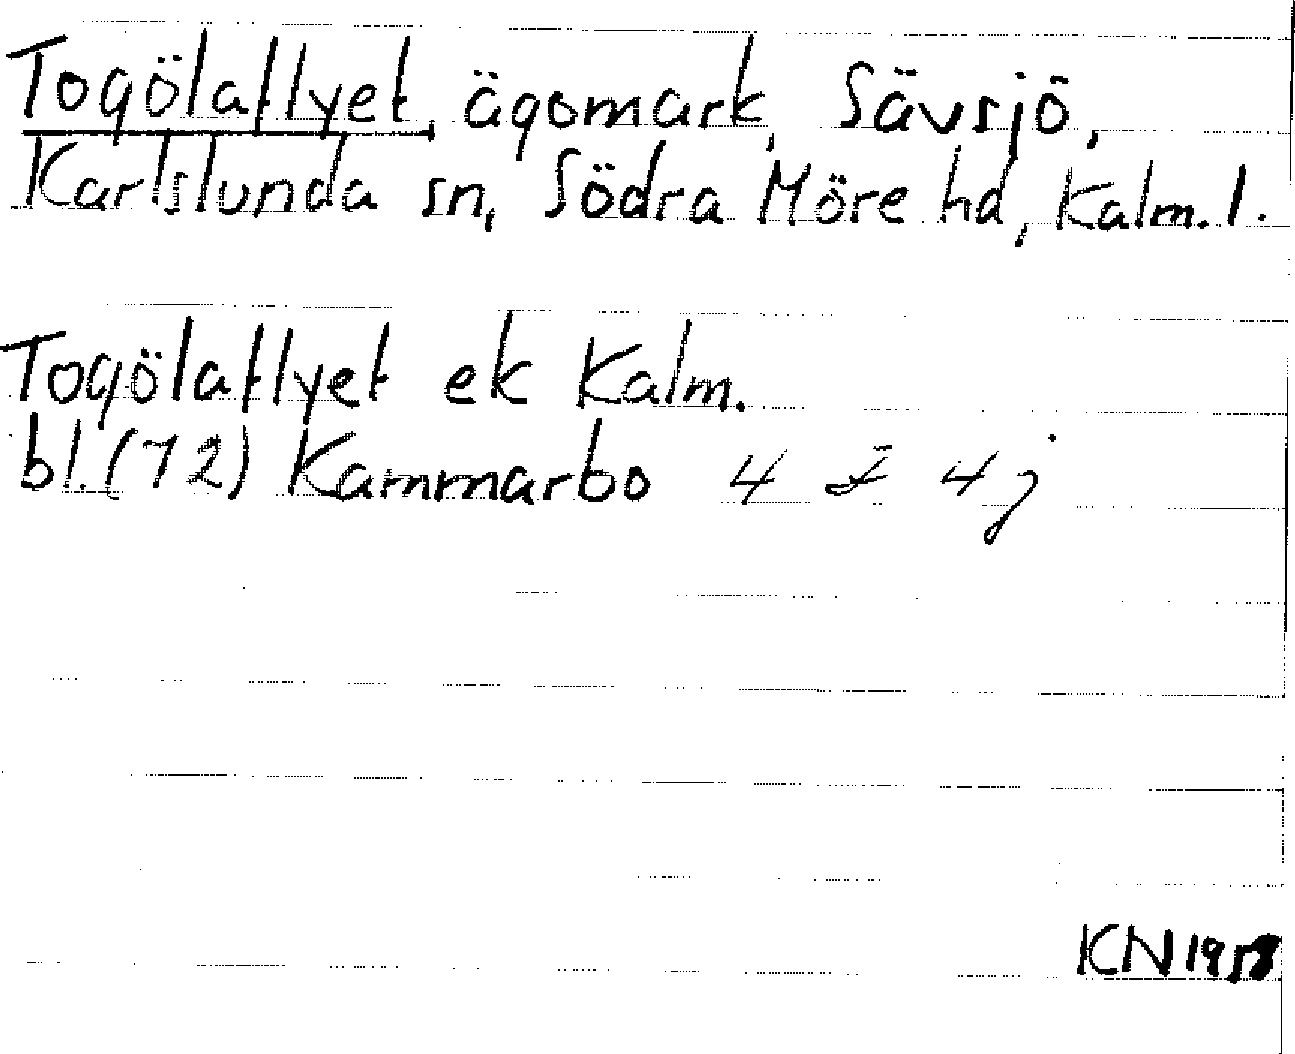 Togölatlyet, ägomark, Sävsjö,
Karlslunda sn, Södra Möre hd, Kalm. l.
Togölatlyet ek Kalm.
bl. (72) Kammarbo 4 I 4 j
KN 1958